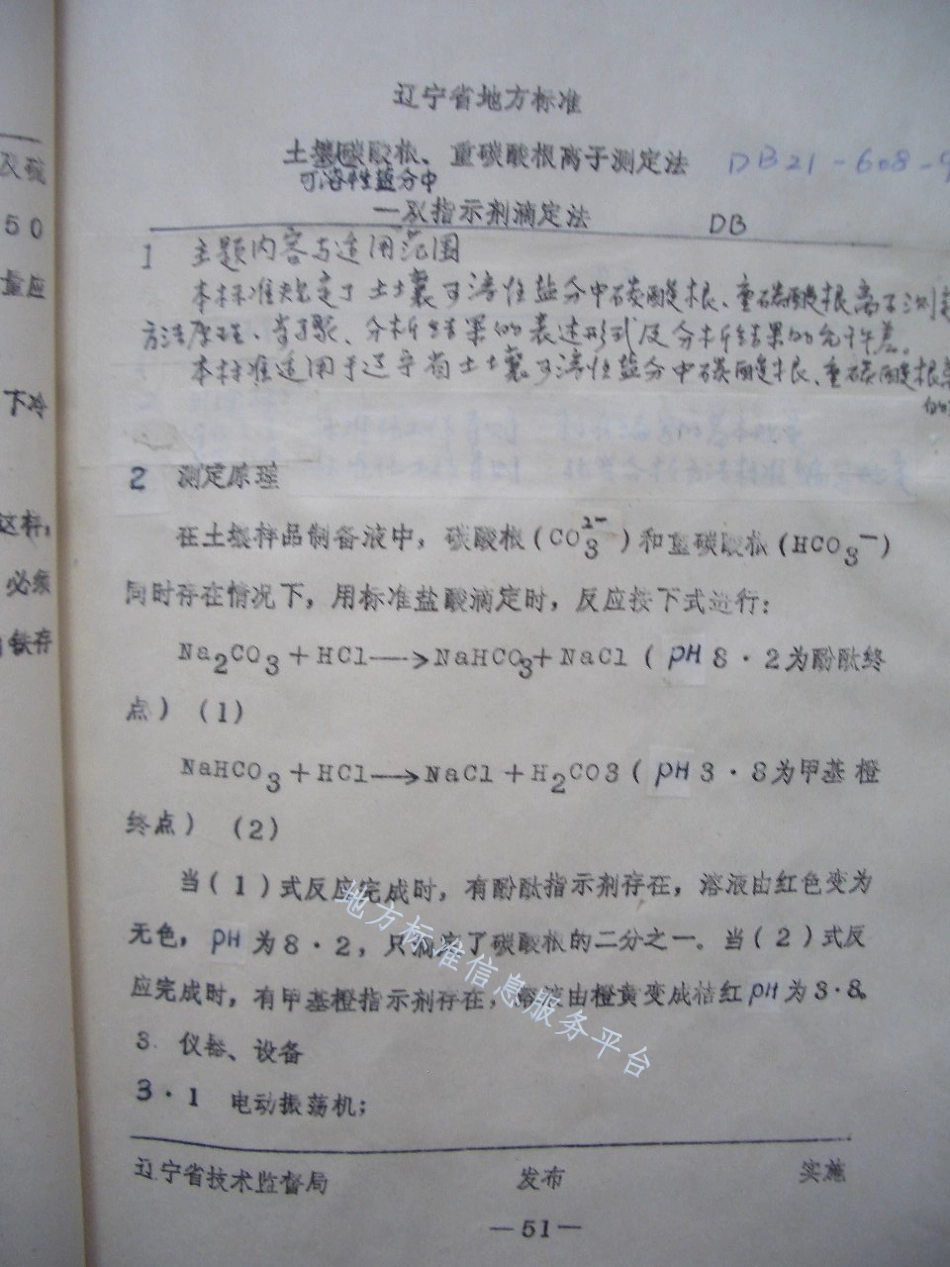 辽宁省地方标准
土壤碳酸根、重碳酸根离子测定法 DB21-608-9
可溶性盐分中
—双指示剂滴定法 DB
及硫
50
量应
下冷
这样,
必须
铁存
1 主题内容与适用范围
本标准规定了土壤可溶性盐分中碳酸根、重碳酸根离子测定
方法原理、步骤、分析结果的表述形式及分析结果的允许差。
本标准适用于辽宁省土壤可溶性盐分中碳酸根、重碳酸根
2 测定原理
在土壤样品制备液中,碳酸根(CO3²⁻)和重碳酸根(HCO3⁻)
同时存在情况下,用标准盐酸滴定时,反应按下式进行:
Na₂CO₃+HCl—→NaHCO₃+NaCl(pH8·2为酚酞终
点)(1)
NaHCO₃+HCl—→NaCl+H₂CO3(pH3·8为甲基橙
终点)(2)
当(1)式反应完成时,有酚酞指示剂存在,溶液由红色变为
无色,pH为8·2,只滴定了碳酸根的二分之一。当(2)式反
应完成时,有甲基橙指示剂存在,溶液由橙黄变成桔红pH为3·8。
3.仪器、设备
3·1 电动振荡机;
辽宁省技术监督局 发布 实施
—51—
地方标准信息服务平台